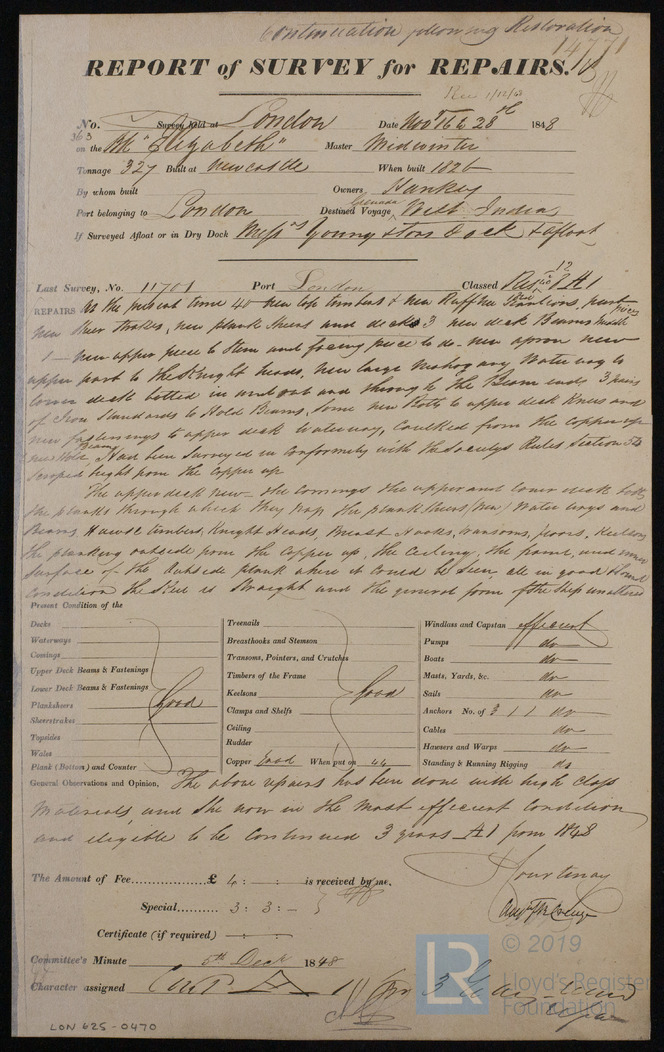 Continuation following Restoration
14771
REPORT of SURVEY for REPAIRS.
Rec 1/12/48
No. 363 Survey held at London Date Novr 16 to 28th 1848
on the Bk "Elizabeth" Master Midwinter
Tonnage 327 Built at Newcastle When built 1826
By whom built Owners Hankey
Port belonging to London Destined Voyage Grenada West Indies
If Surveyed Afloat or in Dry Dock Messrs Young & Sons Dock & afloat
Last Survey, No. 11701 Port London Classed 12 A1
REPAIRS At the present time 40 new top timbers & new Stantions, part
new Sheer Strakes, new plank Sheers and decks 3 new deck Beams middle
1 new upper piece to Stem and facing piece to do. new apron new
upper part to the Knight heads, new large Mahogany Water way to
lower deck bolted in and out and through the Beam ends, 3 pairs
of Iron Standards to Hold Beams, Some new Bolts to upper deck Knees and
new fastenings to upper deck waterway, Caulked from the Copper up
new Hold Beams, Had been Surveyed in Conformity with the Societys Rules Section 54
Scraped bright from the Copper up
The upper deck new - the Comings the upper and lower deck bolts
the planks through which they pass the plank Sheers (new) Water ways and
Beams, Hawse timbers, Knight Heads, Breast Hooks, transoms, floors, Keelsons
the planking outside from the Copper up, the Ceiling, the frame, and inner
surface of the outside plank where it could be seen, all in good & sound
condition the Keel is Straight and the general form of the Ship unaltered
Present Condition of the
Decks
Waterways
Comings
Upper Deck Beams & Fastenings
Lower Deck Beams & Fastenings
Planksheers Good
Sheerstrakes
Topsides
Wales
Plank (Bottom) and Counter
Treenails
Breasthooks and Stemson
Transoms, Pointers, and Crutches
Timbers of the Frame
Keelsons Good
Clamps and Shelfs
Ceiling
Rudder
Copper Good When put on 44
Windlass and Capstan efficient
Pumps do
Boats do
Masts, Yards, &c. do
Sails do
Anchors No. of 3 1 1 do
Cables do
Hawsers and Warps do
Standing & Running Rigging do
General Observations and Opinion, The above repairs has been done with high class
Materials and She now in the most efficient Condition
and eligible to be Continued 3 years A1 from 1848
The Amount of Fee............... £ 4 : - : - is received by me,
Special.......... 3 : 3 : -
Certificate (if required) - : - : -
Courtenay
Committee's Minute 5th Decr 1848
Character assigned Contd A 1 for 3 Years
LON 625-0470
LR © 2019
Lloyd's Register
Foundation